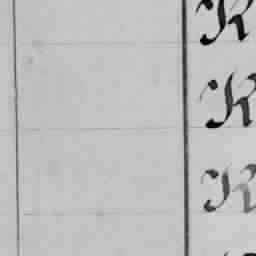 K
K
K